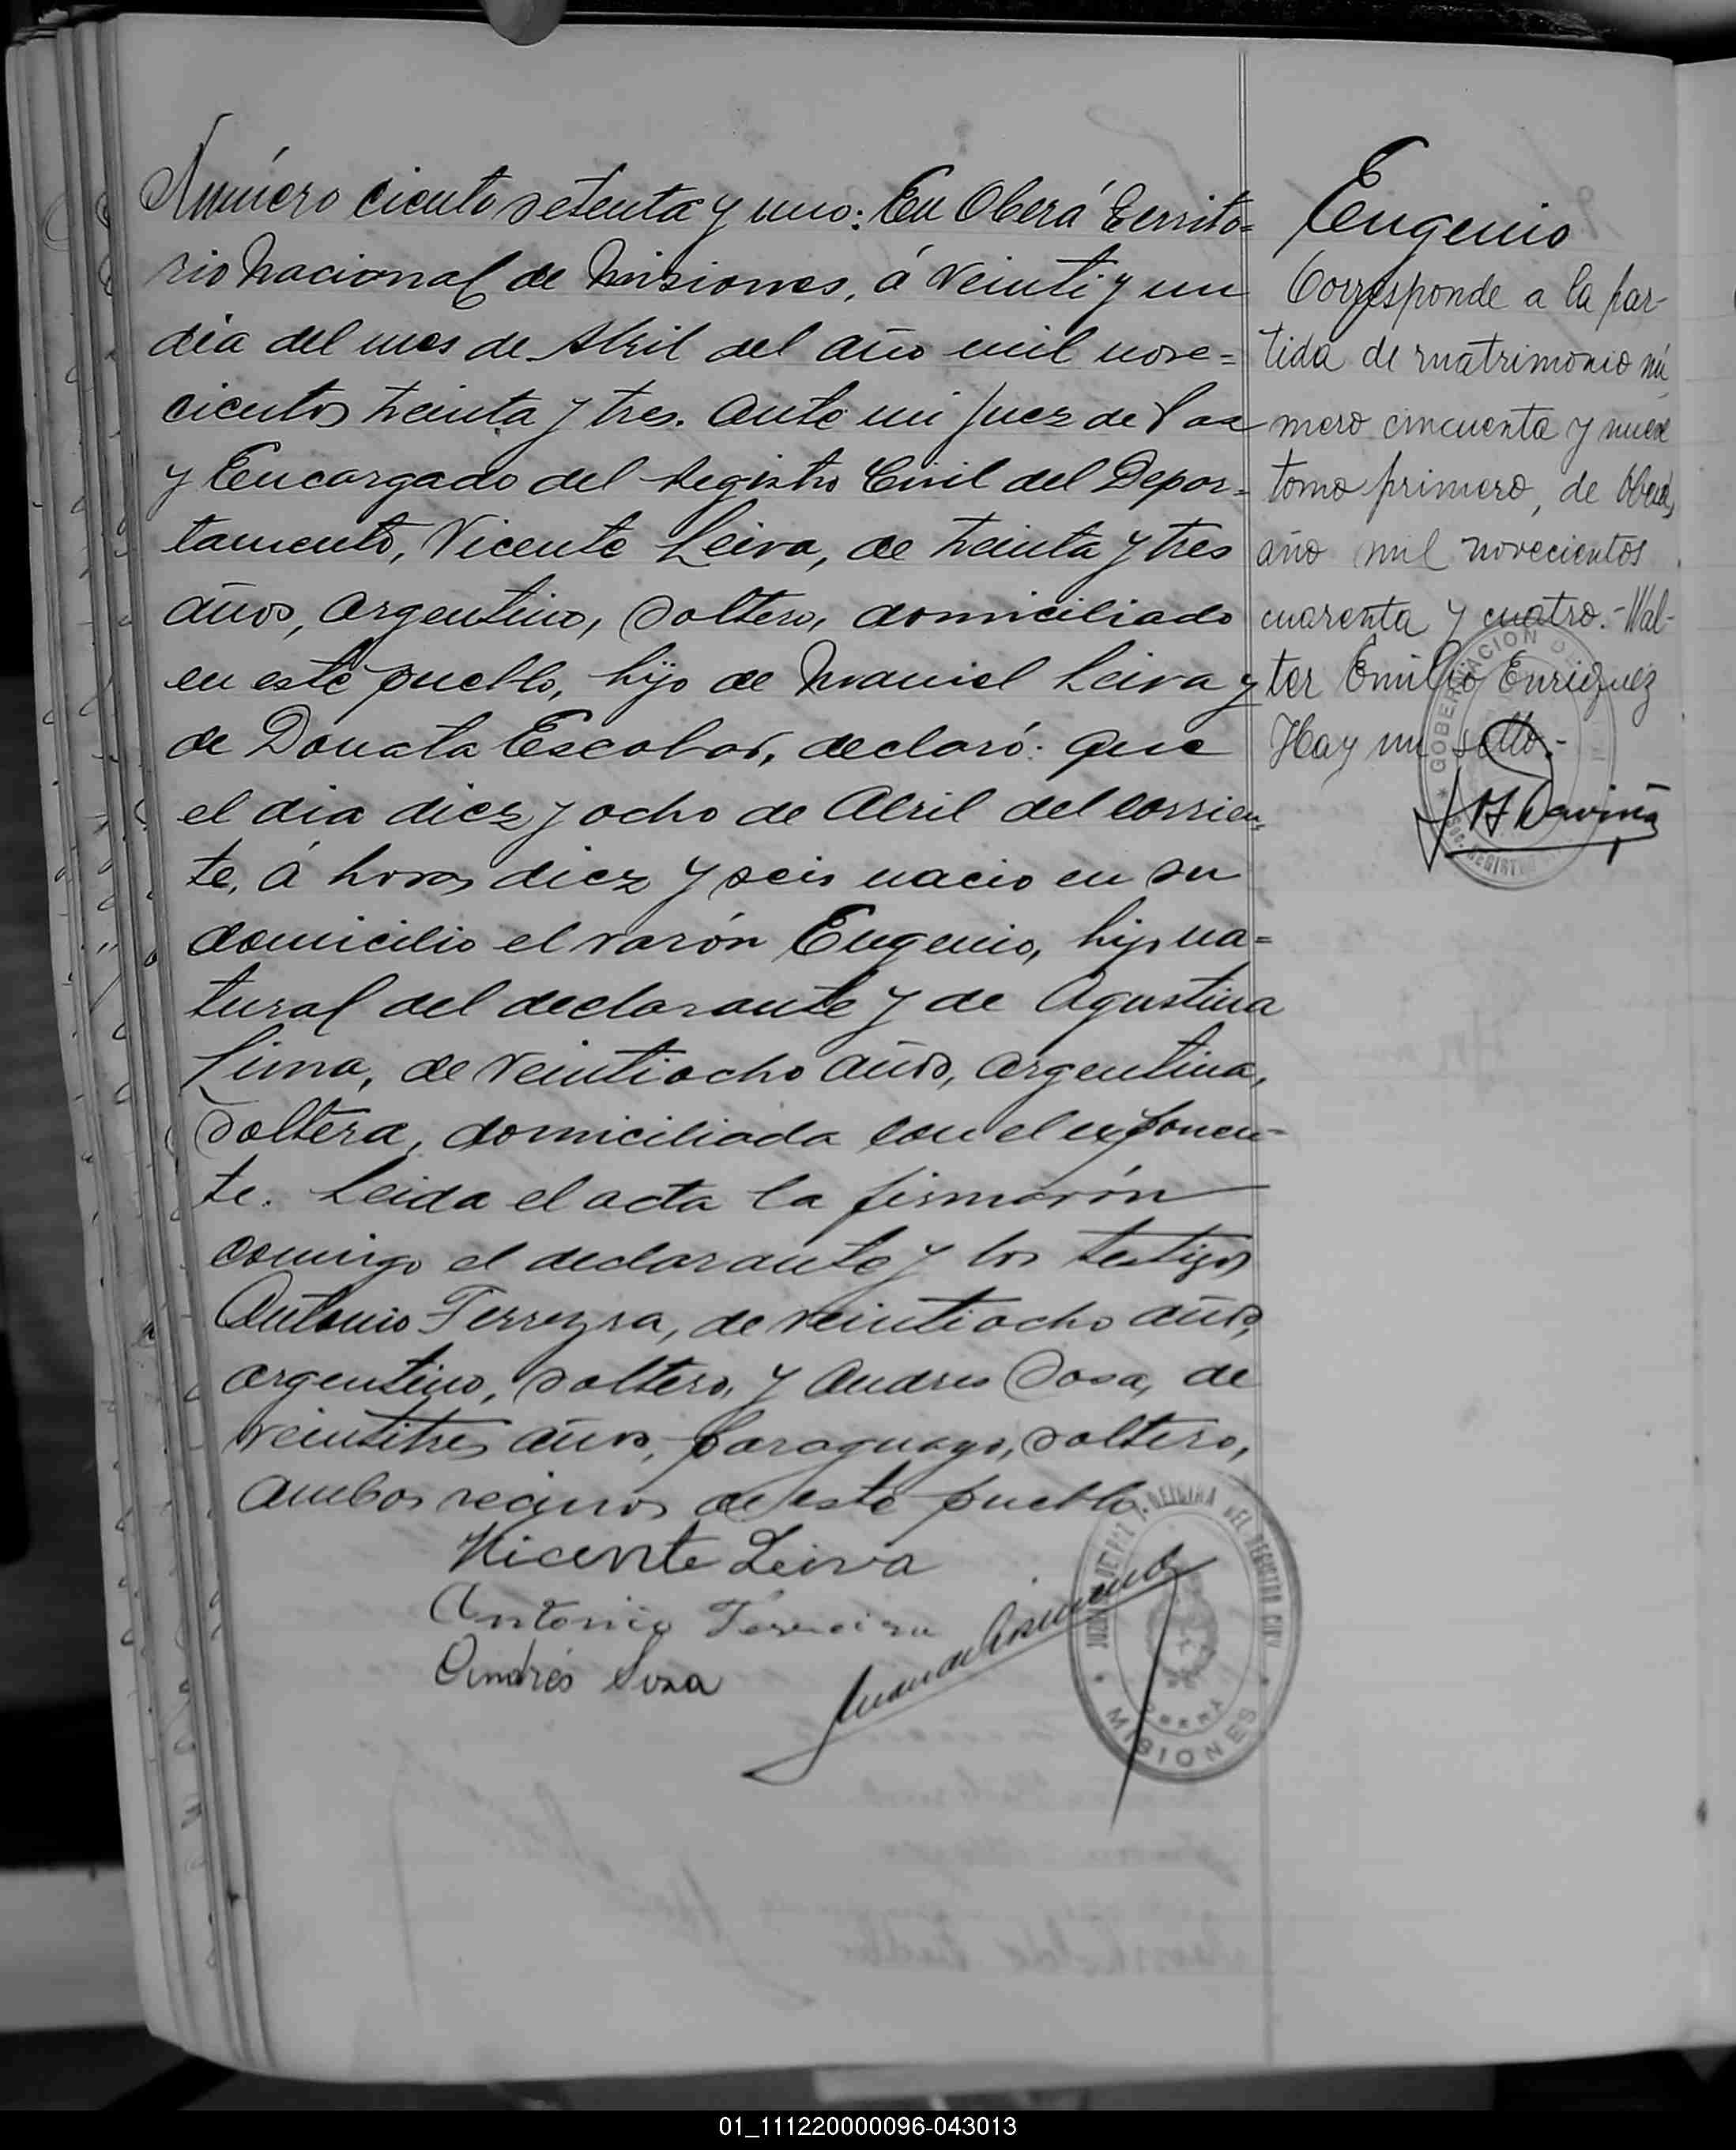 Número ciento setenta y uno: En Oberá Territo=
rio Nacional de Misiones, á veinti y un
dia del mes de Abril del año mil nove=
cientos treinta y tres. Ante mi Juez de Paz
y Encargado del Registro Civil del Depar=
tamento, Vicente Leiva, de treinta y tres
años, argentino, soltero, domiciliado
en este pueblo, hijo de Manuel Leiva y
de Donata Escobar, declaró: que
el dia diez y ocho de Abril del corrien-
te, á horas diez y seis nacio en su
domicilio el varón Eugenio, hijo na=
tural del declarante y de Agustina
Lima, de veintiocho años, argentina,
soltera, domiciliada con el exponen-
te. Leida el acta la firmarón
comigo el declarante y los testigos
Antonio Ferreyra, de veintiocho años,
argentino, soltero, y Andres Sosa, de
veintitres años, paraguayo, soltero,
ambos vecinos de este pueblo
Vicente Leiva
Antonio Ferreira
Andrés Sosa
JUZGADO DE PAZ Y OFICINA DEL REGISTRO CIVIL
OBERÁ
MISIONES
Eugenio
Corresponde a la par-
tida de matrimonio nú
mero cincuenta y nueve
tomo primero, de Oberá,
año mil novecientos
cuarenta y cuatro.- Wal-
ter Emilio Enriquez
Hay un sello.-
GOBERNACION
REGISTRO
01_111220000096-043013